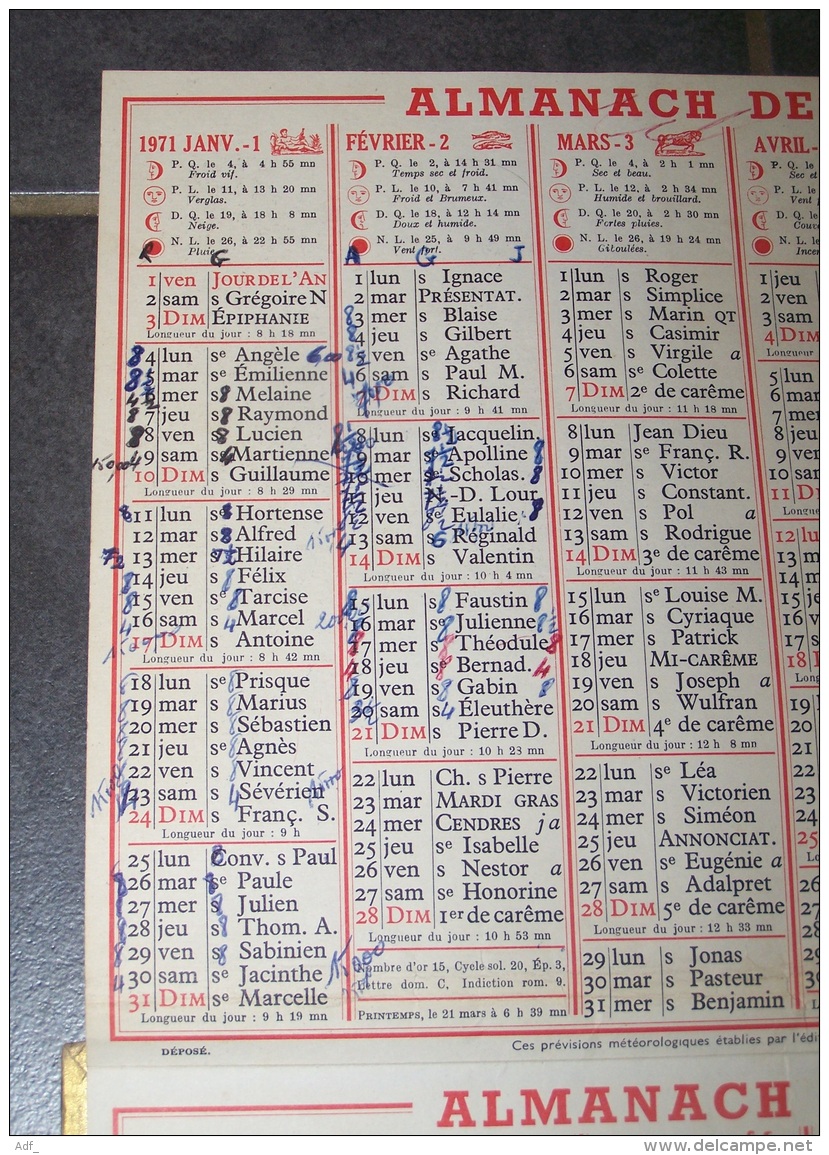 ALMANACH DE
1971 JANV.-1
P. Q. le 4, à 4 h 55 mn
Froid vif.
P. L. le 11, à 13 h 20 mn
Verglas.
D. Q. le 19, à 18 h 8 mn
Neige.
N. L. le 26, à 22 h 55 mn
Pluie
R G
1 ven JOUR DE L'AN
2 sam s Grégoire N
3 DIM ÉPIPHANIE
Longueur du jour : 8 h 18 mn
8 4 lun se Angèle 6,00
8 5 mar se Émilienne
6 mer s 8 Melaine
8 7 jeu s 8 Raymond
8 8 ven s 8 Lucien
150,00 4 9 sam se 4 Martienne
10 DIM s Guillaume
Longueur du jour : 8 h 29 mn
8 11 lun se 8 Hortense
12 mar s 8 Alfred
13 mer s Hilaire
8 14 jeu s 8 Félix
8 15 ven se 8 Tarcise
4 16 sam s 4 Marcel
17 DIM s Antoine
Longueur du jour : 8 h 42 mn
8 18 lun se 8 Prisque
8 19 mar s 8 Marius
8 20 mer s 8 Sébastien
8 21 jeu se 8 Agnès
22 ven s 8 Vincent
23 sam s 4 Sévérien
24 DIM s Franç. S.
Longueur du jour : 9 h
25 lun Conv. s Paul
8 26 mar se 8 Paule
8 27 mer s 8 Julien
8 28 jeu s 8 Thom. A.
8 29 ven s 8 Sabinien
4 30 sam se Jacinthe
31 DIM se Marcelle
Longueur du jour : 9 h 19 mn
FÉVRIER-2
P. Q. le 2, à 14 h 31 mn
Temps sec et froid.
P. L. le 10, à 7 h 41 mn
Froid et Brumeux.
D. Q. le 18, à 12 h 14 mn
Doux et humide.
N. L. le 25, à 9 h 49 mn
Vent fort.
A G J
1 lun s Ignace
2 mar PRÉSENTAT.
8 3 mer s Blaise
8 4 jeu s Gilbert
5 ven se Agathe
4 6 sam s Paul M.
7 DIM s Richard
Longueur du jour : 9 h 41 mn
8 lun se Jacquelin.
9 mar se Apolline 8
10 mer se Scholas. 8
11 jeu N.-D. Lour.
12 ven se Eulalie 8
4 13 sam s 6 Réginald
14 DIM s Valentin
Longueur du jour : 10 h 4 mn
15 lun s 8 Faustin 8
16 mar se 8 Julienne
17 mer s 8 Théodule 8
18 jeu se 8 Bernad. 4
8 19 ven s 8 Gabin 8
20 sam s 4 Éleuthère
21 DIM s Pierre D.
Longueur du jour : 10 h 23 mn
22 lun Ch. s Pierre
23 mar MARDI GRAS
24 mer CENDRES j a
25 jeu se Isabelle
26 ven s Nestor a
27 sam se Honorine
28 DIM 1er de carême
Longueur du jour : 10 h 53 mn
Nombre d'or 15, Cycle sol. 20, Ép. 3,
Lettre dom. C, Indiction rom. 9.
PRINTEMPS, le 21 mars à 6 h 39 mn
MARS-3
P. Q. le 4, à 2 h 1 mn
Sec et beau.
P. L. le 12, à 2 h 34 mn
Humide et brouillard.
D. Q. le 20, à 2 h 30 mn
Fortes pluies.
N. L. le 26, à 19 h 24 mn
Giboulées.
1 lun s Roger
2 mar s Simplice
3 mer s Marin QT
4 jeu s Casimir
5 ven s Virgile a
6 sam se Colette
7 DIM 2e de carême
Longueur du jour : 11 h 18 mn
8 lun s Jean Dieu
9 mar se Franç. R.
10 mer s Victor
11 jeu s Constant.
12 ven s Pol a
13 sam s Rodrigue
14 DIM 3e de carême
Longueur du jour : 11 h 43 mn
15 lun se Louise M.
16 mar s Cyriaque
17 mer s Patrick
18 jeu MI-CARÊME
19 ven s Joseph a
20 sam s Wulfran
21 DIM 4e de carême
Longueur du jour : 12 h 8 mn
22 lun se Léa
23 mar s Victorien
24 mer s Siméon
25 jeu ANNONCIAT.
26 ven se Eugénie a
27 sam s Adalpret
28 DIM 5e de carême
Longueur du jour : 12 h 33 mn
29 lun s Jonas
30 mar s Pasteur
31 mer s Benjamin
AVRIL-
P. Q.
Sec et
P. L.
Vent
D. Q.
Couve
N. L.
Incer
1 jeu
2 ven
3 sam
4 DIM
Longueur
5 lun
6 mar
7 mer
8 jeu
9 ven
10 sam
11 DIM
Longu
12 lun
13 mar
14 me
15 je
16 ve
17 sa
18 D
Lon
19
20
21
22
23
24
25
26
27
28
29
30
DÉPOSÉ.
Ces prévisions météorologiques établies par l'édi
ALMANACH
Adf_
www.delcampe.net